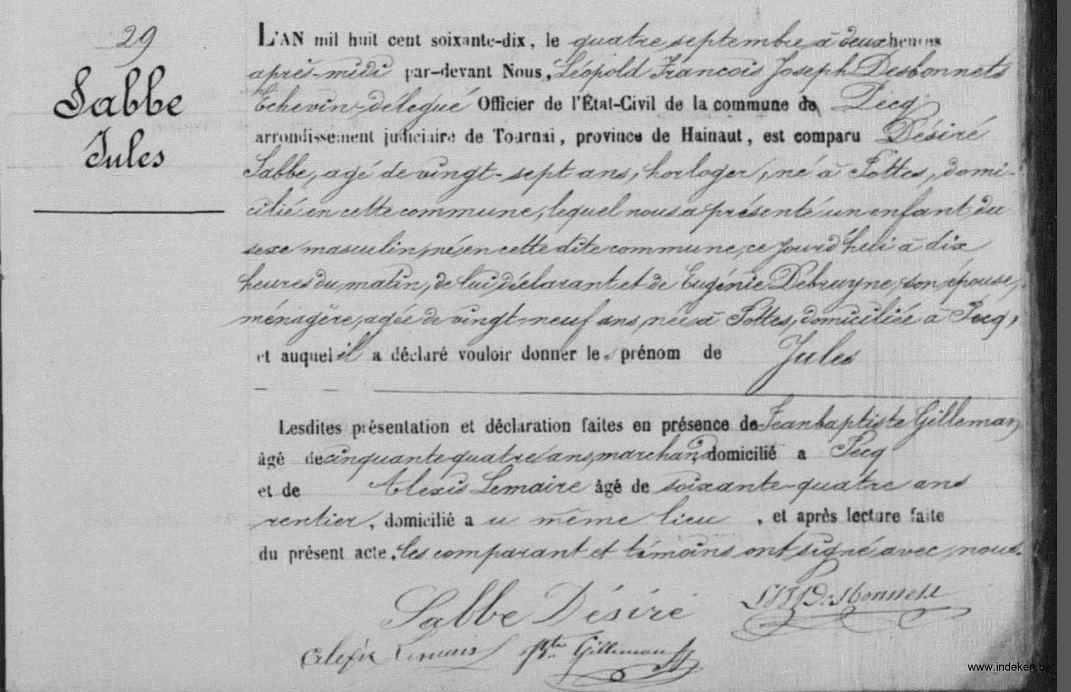 29
Sabbe
Jules
L'AN mil huit cent soixante-dix, le quatre septembre à deux heures
après-midi par-devant Nous, Léopold François Joseph Desbonnets
Echevin délégué Officier de l'État-Civil de la commune de Pecq
arrondissement judiciaire de Tournai, province de Hainaut, est comparu Désiré
Sabbe, agé de vingt-sept ans, horloger, né à Pottes, domi-
cilié en cette commune, lequel nous a présenté un enfant du
sexe masculin, né en cette dite commune, ce jourd'hui à dix
heures du matin, de lui déclarant et de Eugénie Debruyne, son épouse,
ménagère, agée de vingt-neuf ans, née à Pottes, domiciliée à Pecq,
et auquel il a déclaré vouloir donner le prénom de Jules
Lesdites présentation et déclaration faites en présence de Jeanbaptiste Gilleman
âgé de cinquante quatre ans, marchand, domicilié a Pecq
et de Alexis Lemaire âgé de soixante-quatre ans
rentier, domicilié a u même lieu, et après lecture faite
du présent acte, les comparant et témoins ont signé avec nous.
Sabbe Désiré
Desbonnets
Alexis Lemaire Bte Gilleman
www.indeken.be